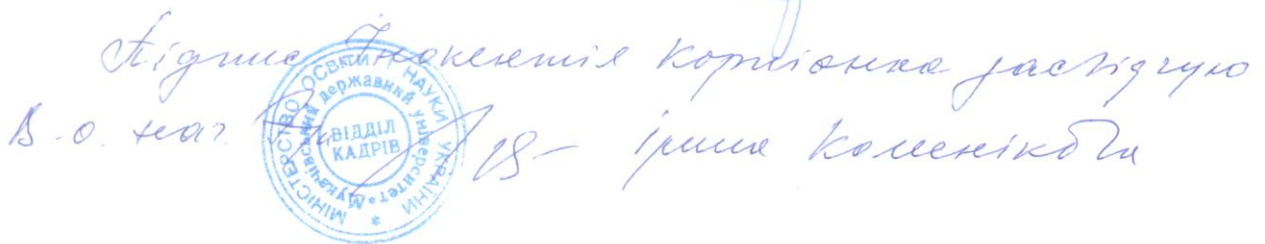 Підпис Інокентія Корніонка засвідчую
В.о. нач. Ірина
МІНІСТЕРСТВО ОСВІТИ І НАУКИ УКРАЇНИ *
Мукачівський державний університет
ВІДДІЛ
КАДРІВ